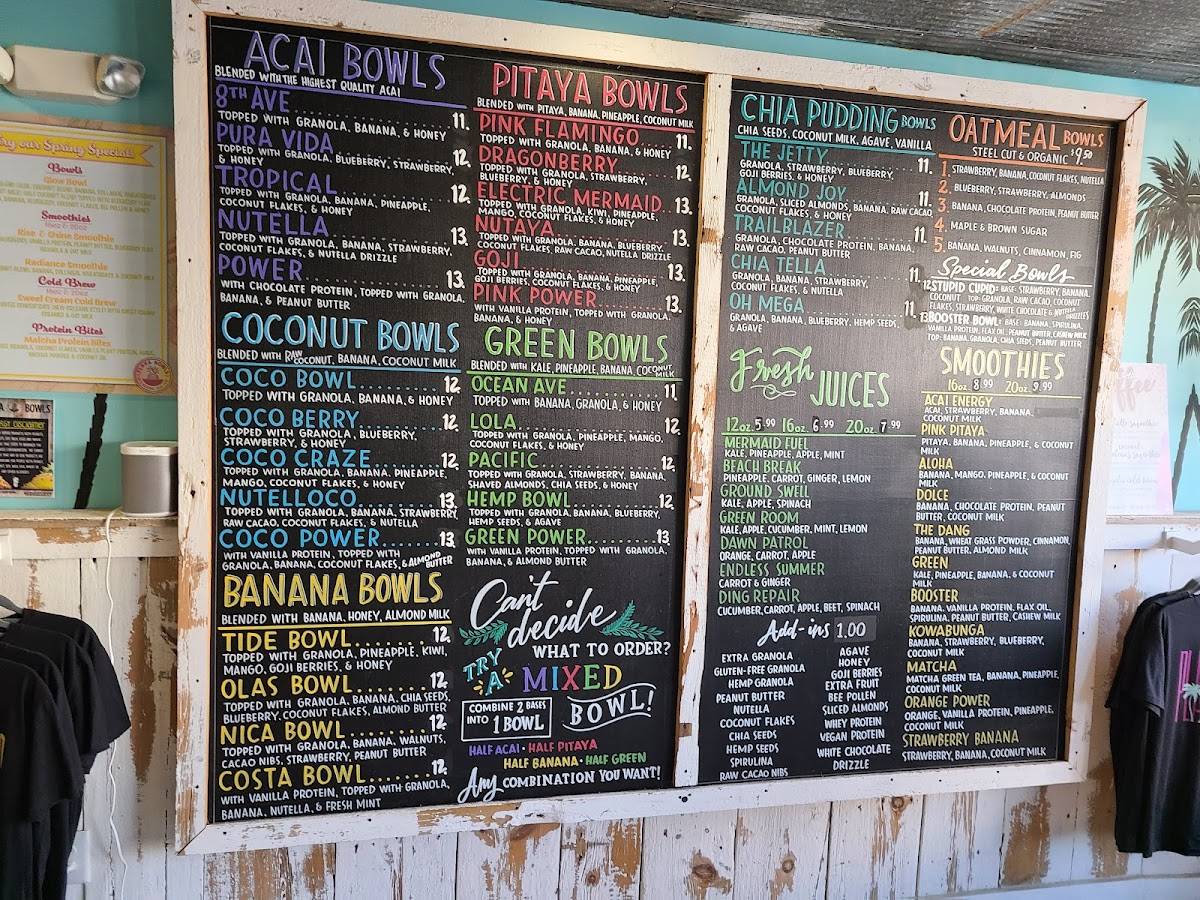 ry our Spring Specials
Bowls
Glow Bowl
Smoothies
16oz & 20oz
Rise & Shine Smoothie
Radiance Smoothie
Cold Brew
16oz & 20oz
Sweet Cream Cold Brew
Protein Bites
Matcha Protein Bites
BOWLS
ACAI BOWLS
BLENDED WITH THE HIGHEST QUALITY ACAI
8TH AVE 11.
TOPPED WITH GRANOLA, BANANA, & HONEY
PURA VIDA 12.
TOPPED WITH GRANOLA, BLUEBERRY, STRAWBERRY,
& HONEY
TROPICAL 12.
TOPPED WITH GRANOLA, BANANA, PINEAPPLE,
COCONUT FLAKES, & HONEY
NUTELLA 13.
TOPPED WITH GRANOLA, BANANA, STRAWBERRY,
COCONUT FLAKES, & NUTELLA DRIZZLE
POWER 13.
WITH CHOCOLATE PROTEIN, TOPPED WITH GRANOLA,
BANANA, & PEANUT BUTTER
COCONUT BOWLS
BLENDED WITH RAW COCONUT, BANANA, COCONUT MILK
COCO BOWL 12.
TOPPED WITH GRANOLA, BANANA, & HONEY
COCO BERRY 12.
TOPPED WITH GRANOLA, BLUEBERRY,
STRAWBERRY, & HONEY
COCO CRAZE 12.
TOPPED WITH GRANOLA, BANANA, PINEAPPLE,
MANGO, COCONUT FLAKES, & HONEY
NUTELLOCO 13.
TOPPED WITH GRANOLA, BANANA, STRAWBERRY,
RAW CACAO, COCONUT FLAKES, & NUTELLA
COCO POWER 13.
WITH VANILLA PROTEIN, TOPPED WITH
GRANOLA, BANANA, COCONUT FLAKES, & ALMOND BUTTER
BANANA BOWLS
BLENDED WITH BANANA, HONEY, ALMOND MILK
TIDE BOWL 12.
TOPPED WITH GRANOLA, PINEAPPLE, KIWI,
MANGO, GOJI BERRIES, & HONEY
OLAS BOWL 12.
TOPPED WITH GRANOLA, BANANA, CHIA SEEDS,
BLUEBERRY, COCONUT FLAKES, ALMOND BUTTER
NICA BOWL 12.
TOPPED WITH GRANOLA, BANANA, WALNUTS,
CACAO NIBS, STRAWBERRY, PEANUT BUTTER
COSTA BOWL 12.
WITH VANILLA PROTEIN, TOPPED WITH GRANOLA,
BANANA, NUTELLA, & FRESH MINT
PITAYA BOWLS
BLENDED WITH PITAYA, BANANA, PINEAPPLE, COCONUT MILK
PINK FLAMINGO 11.
TOPPED WITH GRANOLA, BANANA, & HONEY
DRAGONBERRY 12.
TOPPED WITH GRANOLA, STRAWBERRY,
BLUEBERRY, & HONEY
ELECTRIC MERMAID 13.
TOPPED WITH GRANOLA, KIWI, PINEAPPLE,
MANGO, COCONUT FLAKES, & HONEY
NUTAYA 13.
TOPPED WITH GRANOLA, BANANA, BLUEBERRY,
COCONUT FLAKES, RAW CACAO, NUTELLA DRIZZLE
GOJI 13.
TOPPED WITH GRANOLA, BANANA, PINEAPPLE,
GOJI BERRIES, COCONUT FLAKES, & HONEY
PINK POWER 13.
WITH VANILLA PROTEIN, TOPPED WITH GRANOLA,
BANANA, & HONEY
GREEN BOWLS
BLENDED WITH KALE, PINEAPPLE, BANANA, COCONUT MILK
OCEAN AVE 11.
TOPPED WITH BANANA, GRANOLA, & HONEY
LOLA 12.
TOPPED WITH GRANOLA, PINEAPPLE, MANGO,
COCONUT FLAKES, & HONEY
PACIFIC 12.
TOPPED WITH GRANOLA, STRAWBERRY, BANANA,
SHAVED ALMONDS, CHIA SEEDS, & HONEY
HEMP BOWL 12.
TOPPED WITH GRANOLA, BANANA, BLUEBERRY,
HEMP SEEDS, & AGAVE
GREEN POWER 13.
WITH VANILLA PROTEIN, TOPPED WITH GRANOLA,
BANANA, & ALMOND BUTTER
Can't decide
WHAT TO ORDER?
TRY A MIXED BOWL!
COMBINE 2 BASES
INTO 1 BOWL
HALF ACAI • HALF PITAYA
HALF BANANA • HALF GREEN
Any COMBINATION YOU WANT!
CHIA PUDDING BOWLS
CHIA SEEDS, COCONUT MILK, AGAVE, VANILLA
THE JETTY 11.
GRANOLA, STRAWBERRY, BLUEBERRY,
GOJI BERRIES, & HONEY
ALMOND JOY 11.
GRANOLA, SLICED ALMONDS, BANANA, RAW CACAO,
COCONUT FLAKES, & HONEY
TRAILBLAZER 11.
GRANOLA, CHOCOLATE PROTEIN, BANANA,
RAW CACAO, PEANUT BUTTER
CHIA TELLA 11.
GRANOLA, BANANA, STRAWBERRY,
COCONUT FLAKES, & NUTELLA
OH MEGA 11.
GRANOLA, BANANA, BLUEBERRY, HEMP SEEDS,
& AGAVE
Fresh JUICES
12oz. 5.99 16oz. 6.99 20oz. 7.99
MERMAID FUEL
KALE, PINEAPPLE, APPLE, MINT
BEACH BREAK
PINEAPPLE, CARROT, GINGER, LEMON
GROUND SWELL
KALE, APPLE, SPINACH
GREEN ROOM
KALE, APPLE, CUCUMBER, MINT, LEMON
DAWN PATROL
ORANGE, CARROT, APPLE
ENDLESS SUMMER
CARROT & GINGER
DING REPAIR
CUCUMBER, CARROT, APPLE, BEET, SPINACH
Add-ins 1.00
EXTRA GRANOLA
GLUTEN-FREE GRANOLA
HEMP GRANOLA
PEANUT BUTTER
NUTELLA
COCONUT FLAKES
CHIA SEEDS
HEMP SEEDS
SPIRULINA
RAW CACAO NIBS
AGAVE
HONEY
GOJI BERRIES
EXTRA FRUIT
BEE POLLEN
SLICED ALMONDS
WHEY PROTEIN
VEGAN PROTEIN
WHITE CHOCOLATE
DRIZZLE
OATMEAL BOWLS
STEEL CUT & ORGANIC $9.50
1. STRAWBERRY, BANANA, COCONUT FLAKES, NUTELLA
2. BLUEBERRY, STRAWBERRY, ALMONDS
3. BANANA, CHOCOLATE PROTEIN, PEANUT BUTTER
4. MAPLE & BROWN SUGAR
5. BANANA, WALNUTS, CINNAMON, FIG
Special Bowls
12. STUPID CUPID: BASE: STRAWBERRY, BANANA,
COCONUT TOP: GRANOLA, RAW CACAO, COCONUT
FLAKES, STRAWBERRY, WHITE CHOCOLATE & NUTELLA DRIZZLES
13. BOOSTER BOWL: BASE: BANANA, SPIRULINA,
VANILLA PROTEIN, FLAX OIL, PEANUT BUTTER, CASHEW MILK
TOP: BANANA, GRANOLA, CHIA SEEDS, PEANUT BUTTER
SMOOTHIES
16oz. 8.99 20oz. 9.99
ACAI ENERGY
ACAI, STRAWBERRY, BANANA,
COCONUT MILK
PINK PITAYA
PITAYA, BANANA, PINEAPPLE, & COCONUT
MILK
ALOHA
BANANA, MANGO, PINEAPPLE, & COCONUT
MILK
DOLCE
BANANA, CHOCOLATE PROTEIN, PEANUT
BUTTER, COCONUT MILK
THE DANG
BANANA, WHEAT GRASS POWDER, CINNAMON,
PEANUT BUTTER, ALMOND MILK
GREEN
KALE, PINEAPPLE, BANANA, & COCONUT
MILK
BOOSTER
BANANA, VANILLA PROTEIN, FLAX OIL,
SPIRULINA, PEANUT BUTTER, CASHEW MILK
KOWABUNGA
BANANA, STRAWBERRY, BLUEBERRY,
COCONUT MILK
MATCHA
MATCHA GREEN TEA, BANANA, PINEAPPLE,
COCONUT MILK
ORANGE POWER
ORANGE, VANILLA PROTEIN, PINEAPPLE,
COCONUT MILK
STRAWBERRY BANANA
STRAWBERRY, BANANA, COCONUT MILK